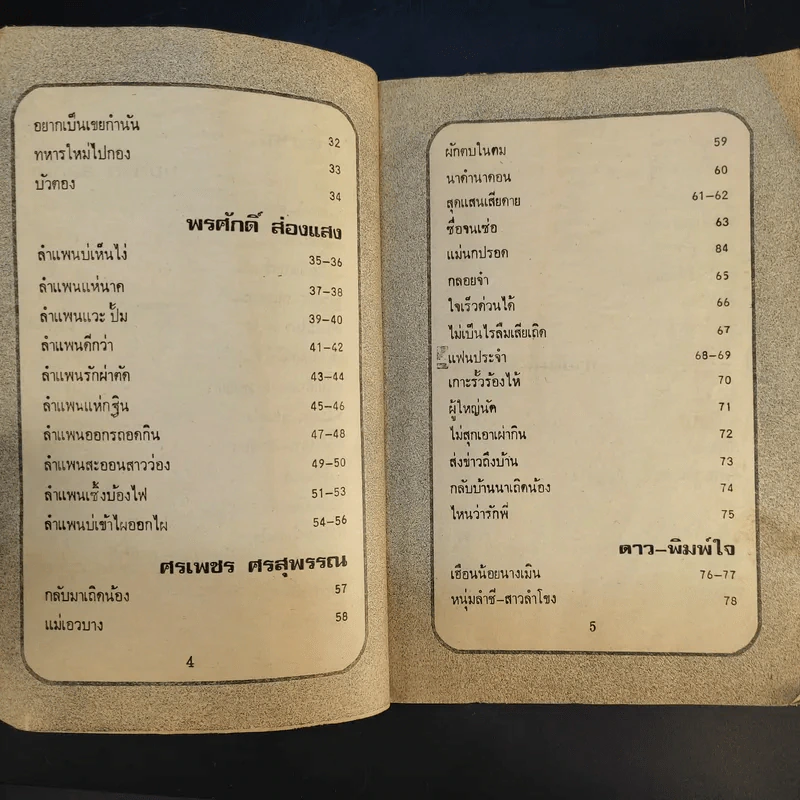 อยากเป็นเขยกำนัน 32
ทหารใหม่ไปกอง 33
บัวตอง 34
พรศักดิ์ ส่องแสง
ลำแพนบ่เห็นไง่ 35-36
ลำแพนแห่นาค 37-38
ลำแพนแวะ ปั๊ม 39-40
ลำแพนดีกว่า 41-42
ลำแพนรักผ่าตัด 43-44
ลำแพนแห่กฐิน 45-46
ลำแพนออกรถอดกิน 47-48
ลำแพนสะออนสาวว่อง 49-50
ลำแพนเซิ้งบ้องไฟ 51-53
ลำแพนบ่เข้าไผออกไผ 54-56
ศรเพชร ศรสุพรรณ
กลับมาเถิดน้อง 57
แม่เอวบาง 58
4
ผักตบในตม 59
นาคำนาดอน 60
สุดแสนเสียดาย 61-62
ซื่อจนเซ่อ 63
แม่นกปรอด 84
กลอยจำ 65
ใจเร็วด่วนได้ 66
ไม่เป็นไรลืมเสียเถิด 67
แฟนประจำ 68-69
เกาะรั้วร้องไห้ 70
ผู้ใหญ่นัด 71
ไม่สุกเอาเผากิน 72
ส่งข่าวถึงบ้าน 73
กลับบ้านนาเถิดน้อง 74
ไหนว่ารักพี่ 75
ดาว-พิมพ์ใจ
เฮือนน้อยนางเมิน 76-77
หนุ่มลำชี-สาวลำโขง 78
5